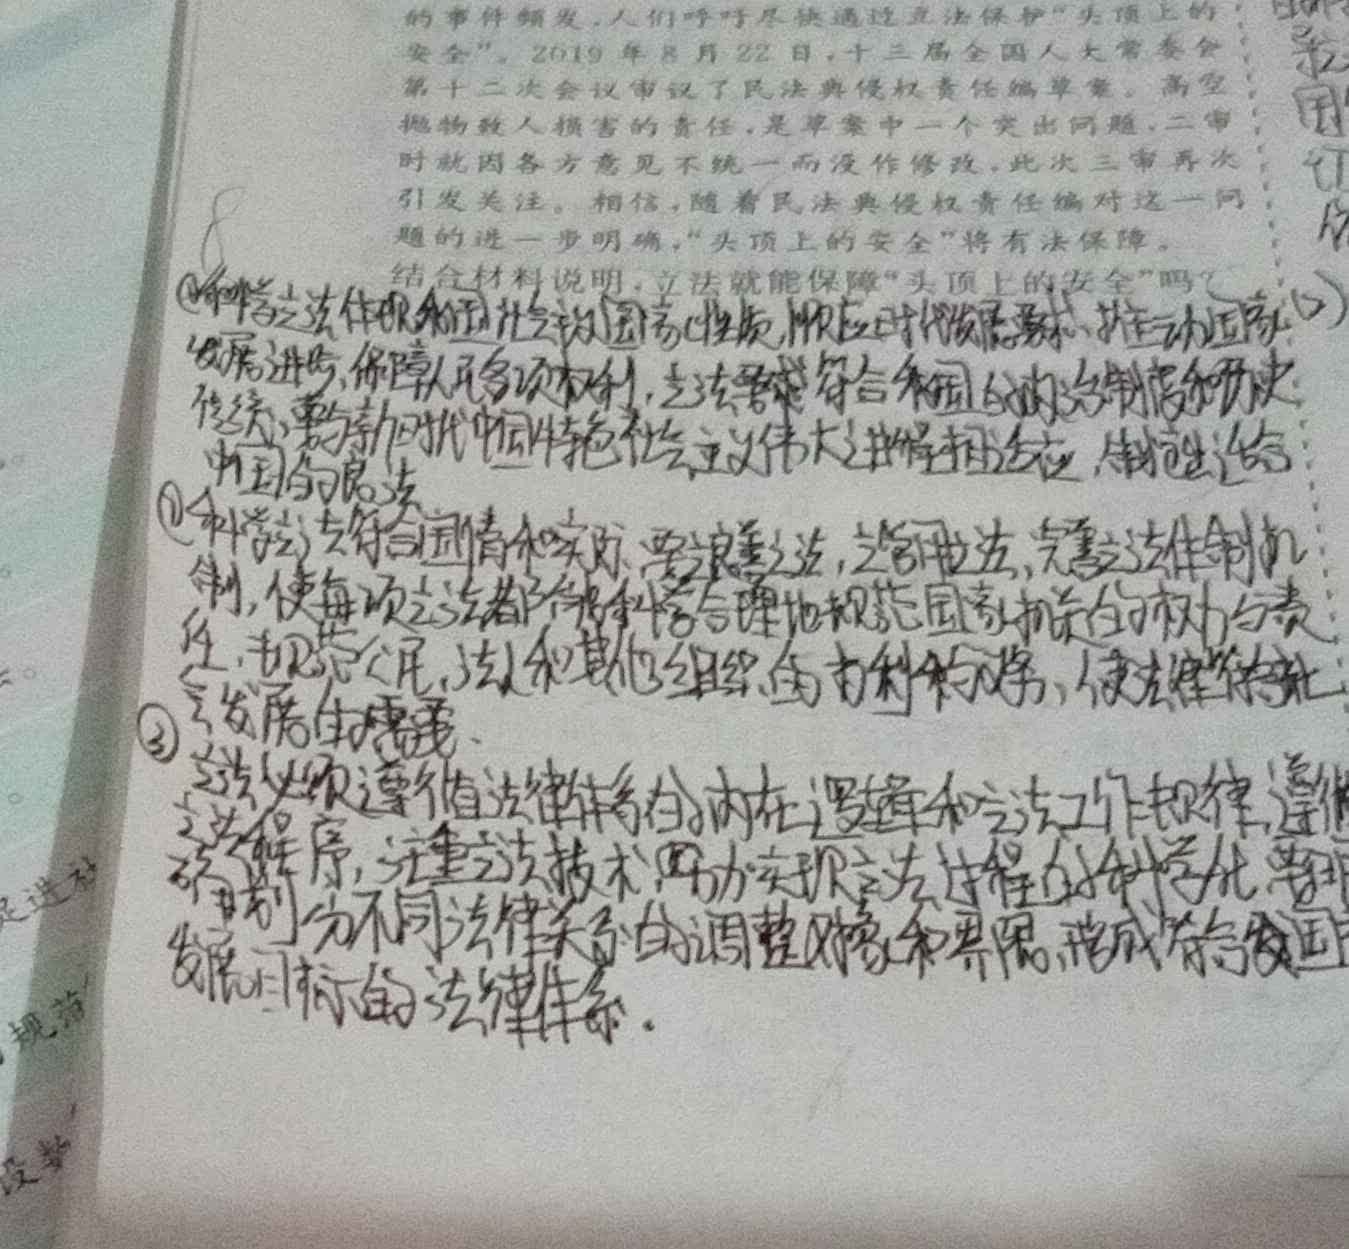 的事件频发,人们呼吁尽快通过立法保护“头顶上的
安全”。2019年8月22日,十三届全国人大常委会
第十二次会议审议了民法典侵权责任编草案。高空
抛物致人损害的责任,是草案中一个突出问题,二审
时就因各方意见不统一而没作修改,此次三审再次
引发关注。相信,随着民法典侵权责任编对这一问
题的进一步明确,“头顶上的安全”将有法保障。
结合材料说明,立法就能保障“头顶上的安全”吗?
8
②科学立法体现我国社会主义国家性质,顺应时代发展要求、推动国家
发展进步、保障人民各项权利,立法要求符合我国的政治制度和历史
传统、要与新时代中国特色社会主义伟大进程相适应,制定出适合
中国的良法
①科学立法符合国情和实际、要立良善之法,立管用之法,完善立法体制机
制,使每项立法都能够科学合理地规范国家机关的权力与责
任,规范公民、法人和其他组织的权利和义务,使法律符合社
会发展的需要、
③立法必须遵循法律体系的内在逻辑和立法工作规律,遵循
立法程序,注重立法技术,努力实现立法过程的科学化,
划分不同法律关系的调整对象和界限,形成符合我国
发展目标的法律体系.
(2)
促进社
规范
没